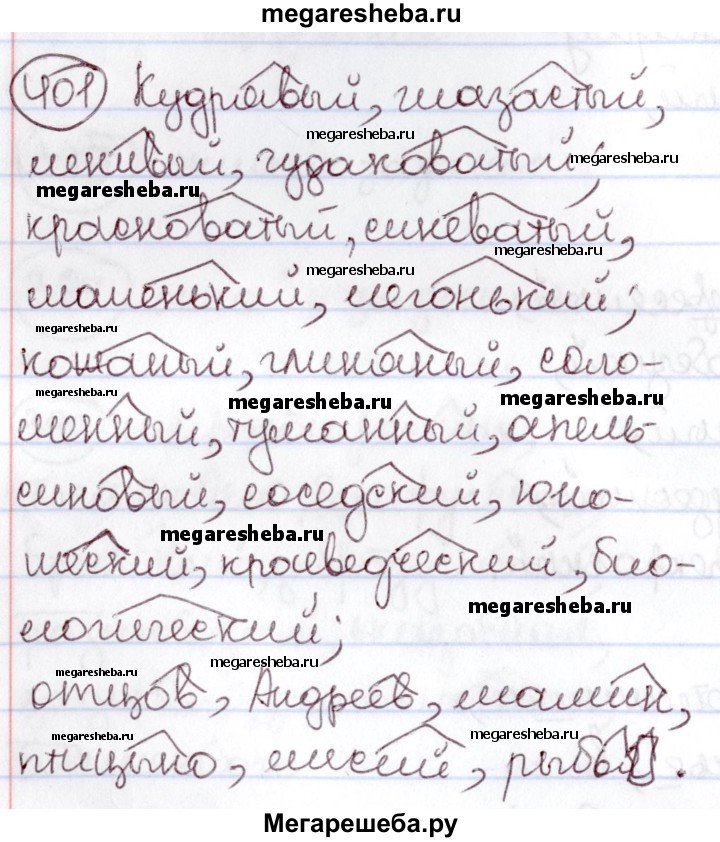 megaresheba.ru
401 Кудрявый, глазастый,
megaresheba.ru
ленивый, чудаковатый;
megaresheba.ru
megaresheba.ru
красноватый, синеватый,
megaresheba.ru
megaresheba.ru
маленький, лёгонький;
megaresheba.ru
кожаный, глиняный, соло-
megaresheba.ru
megaresheba.ru
megaresheba.ru
менный, туманный, апель-
синовый, соседский, юно-
megaresheba.ru
шеский, краеведческий, био-
megaresheba.ru
логический;
megaresheba.ru
megaresheba.ru
отцов, Андреев, мамин,
megaresheba.ru
megaresheba.ru
птицыно, лисий, рыбий.
Мегарешеба.ру